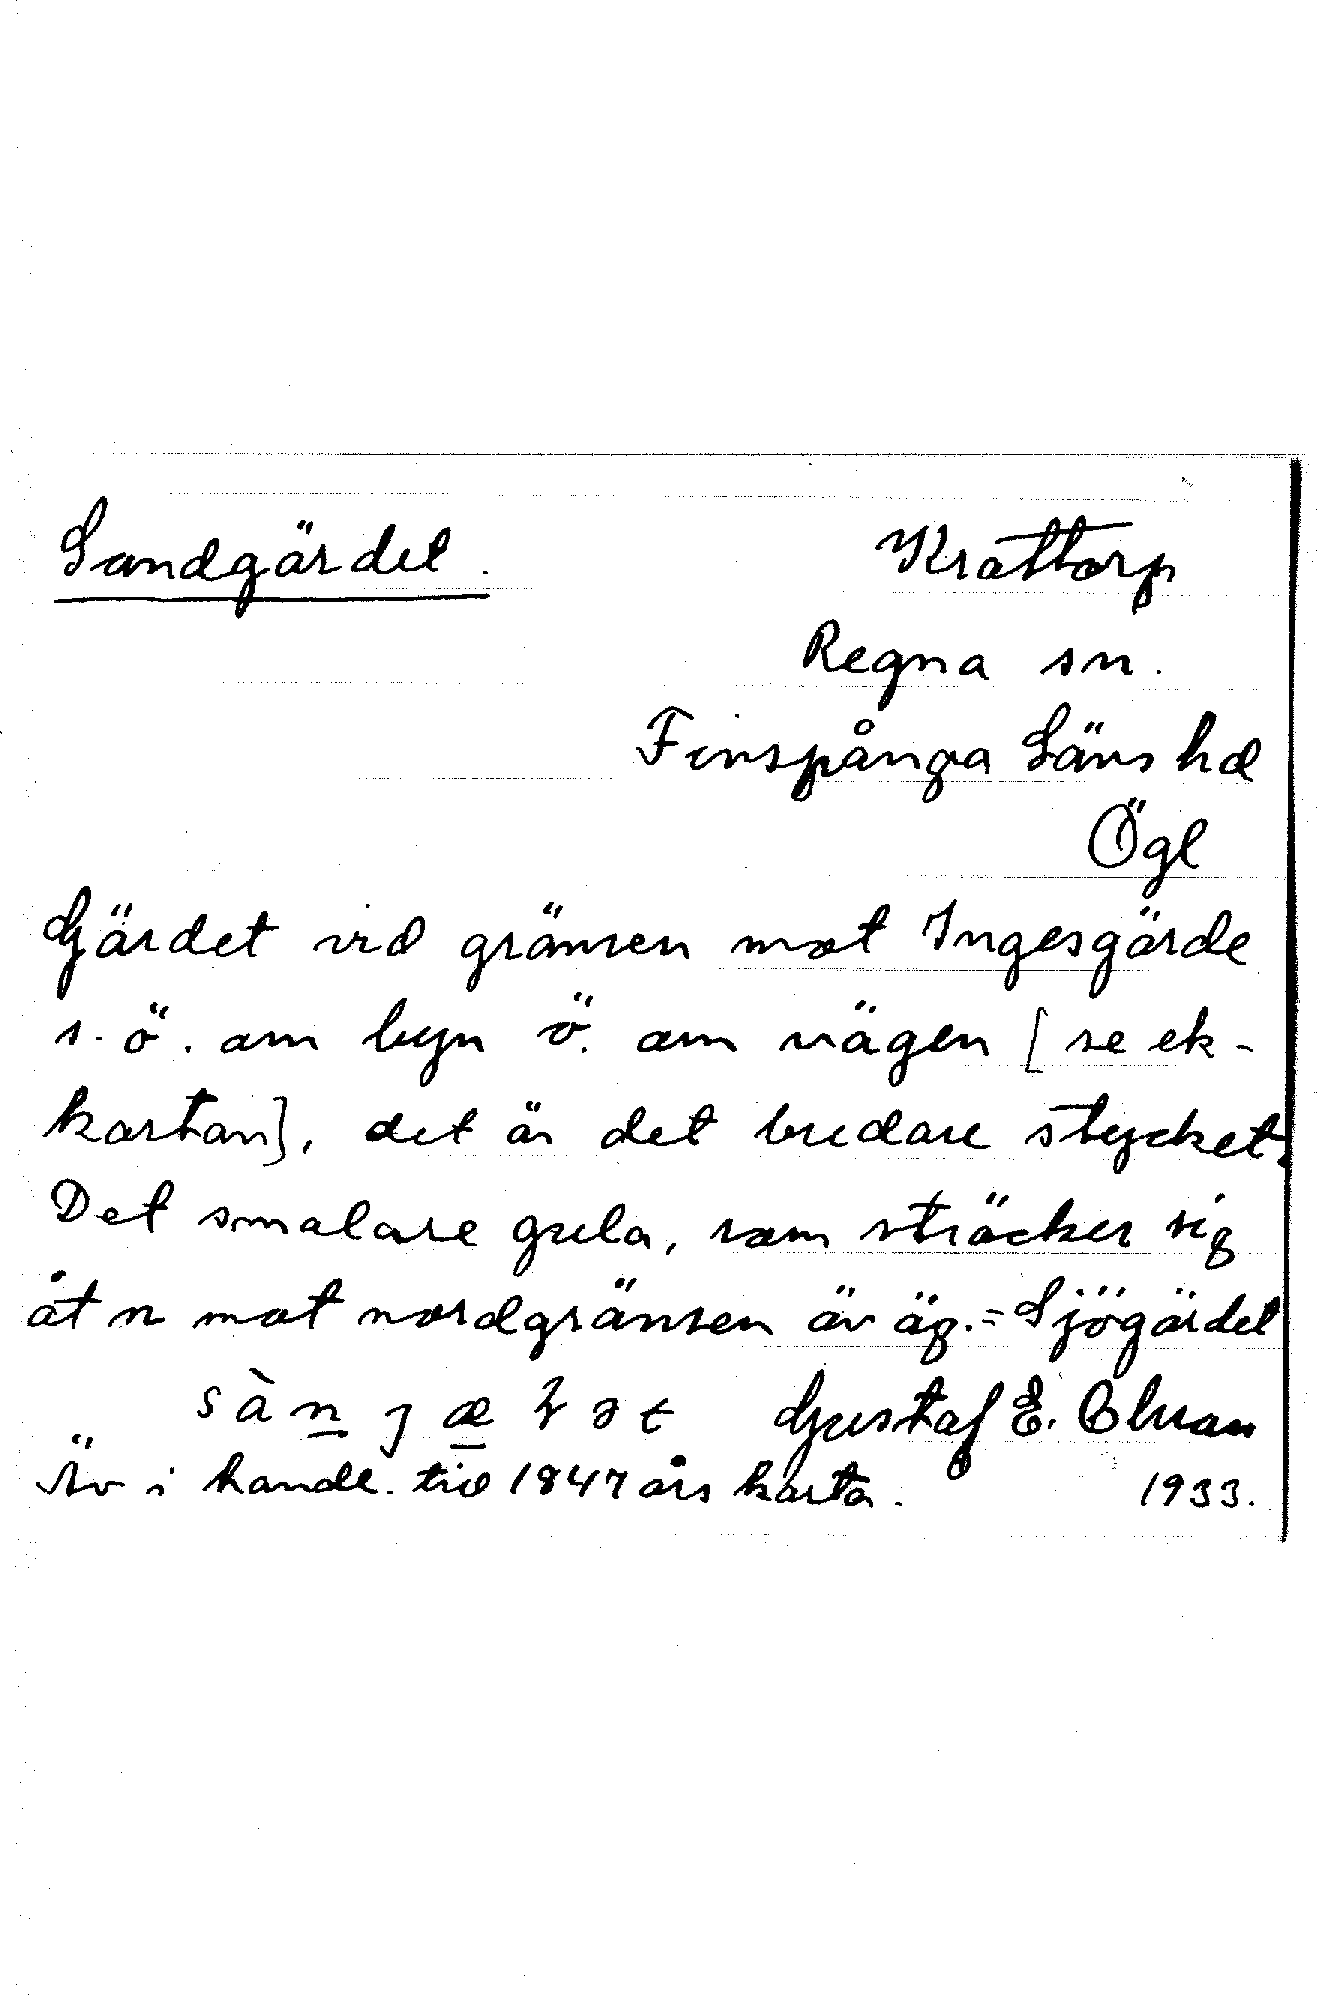 Sandgärdet.
Krattorp
Regna sn.
Finspånga Läns hd
Ögl
Gärdet vid gränsen mot Ingesgärde
s.ö. om byn ö. om vägen [se ek-
kartan], det är det bredare stycket.
Det smalare gula, som sträcker sig
åt n mot nordgränsen är äg. = Sjögärdet
Gustaf E.
Äv i handl. till 1847 års karta.
1933.